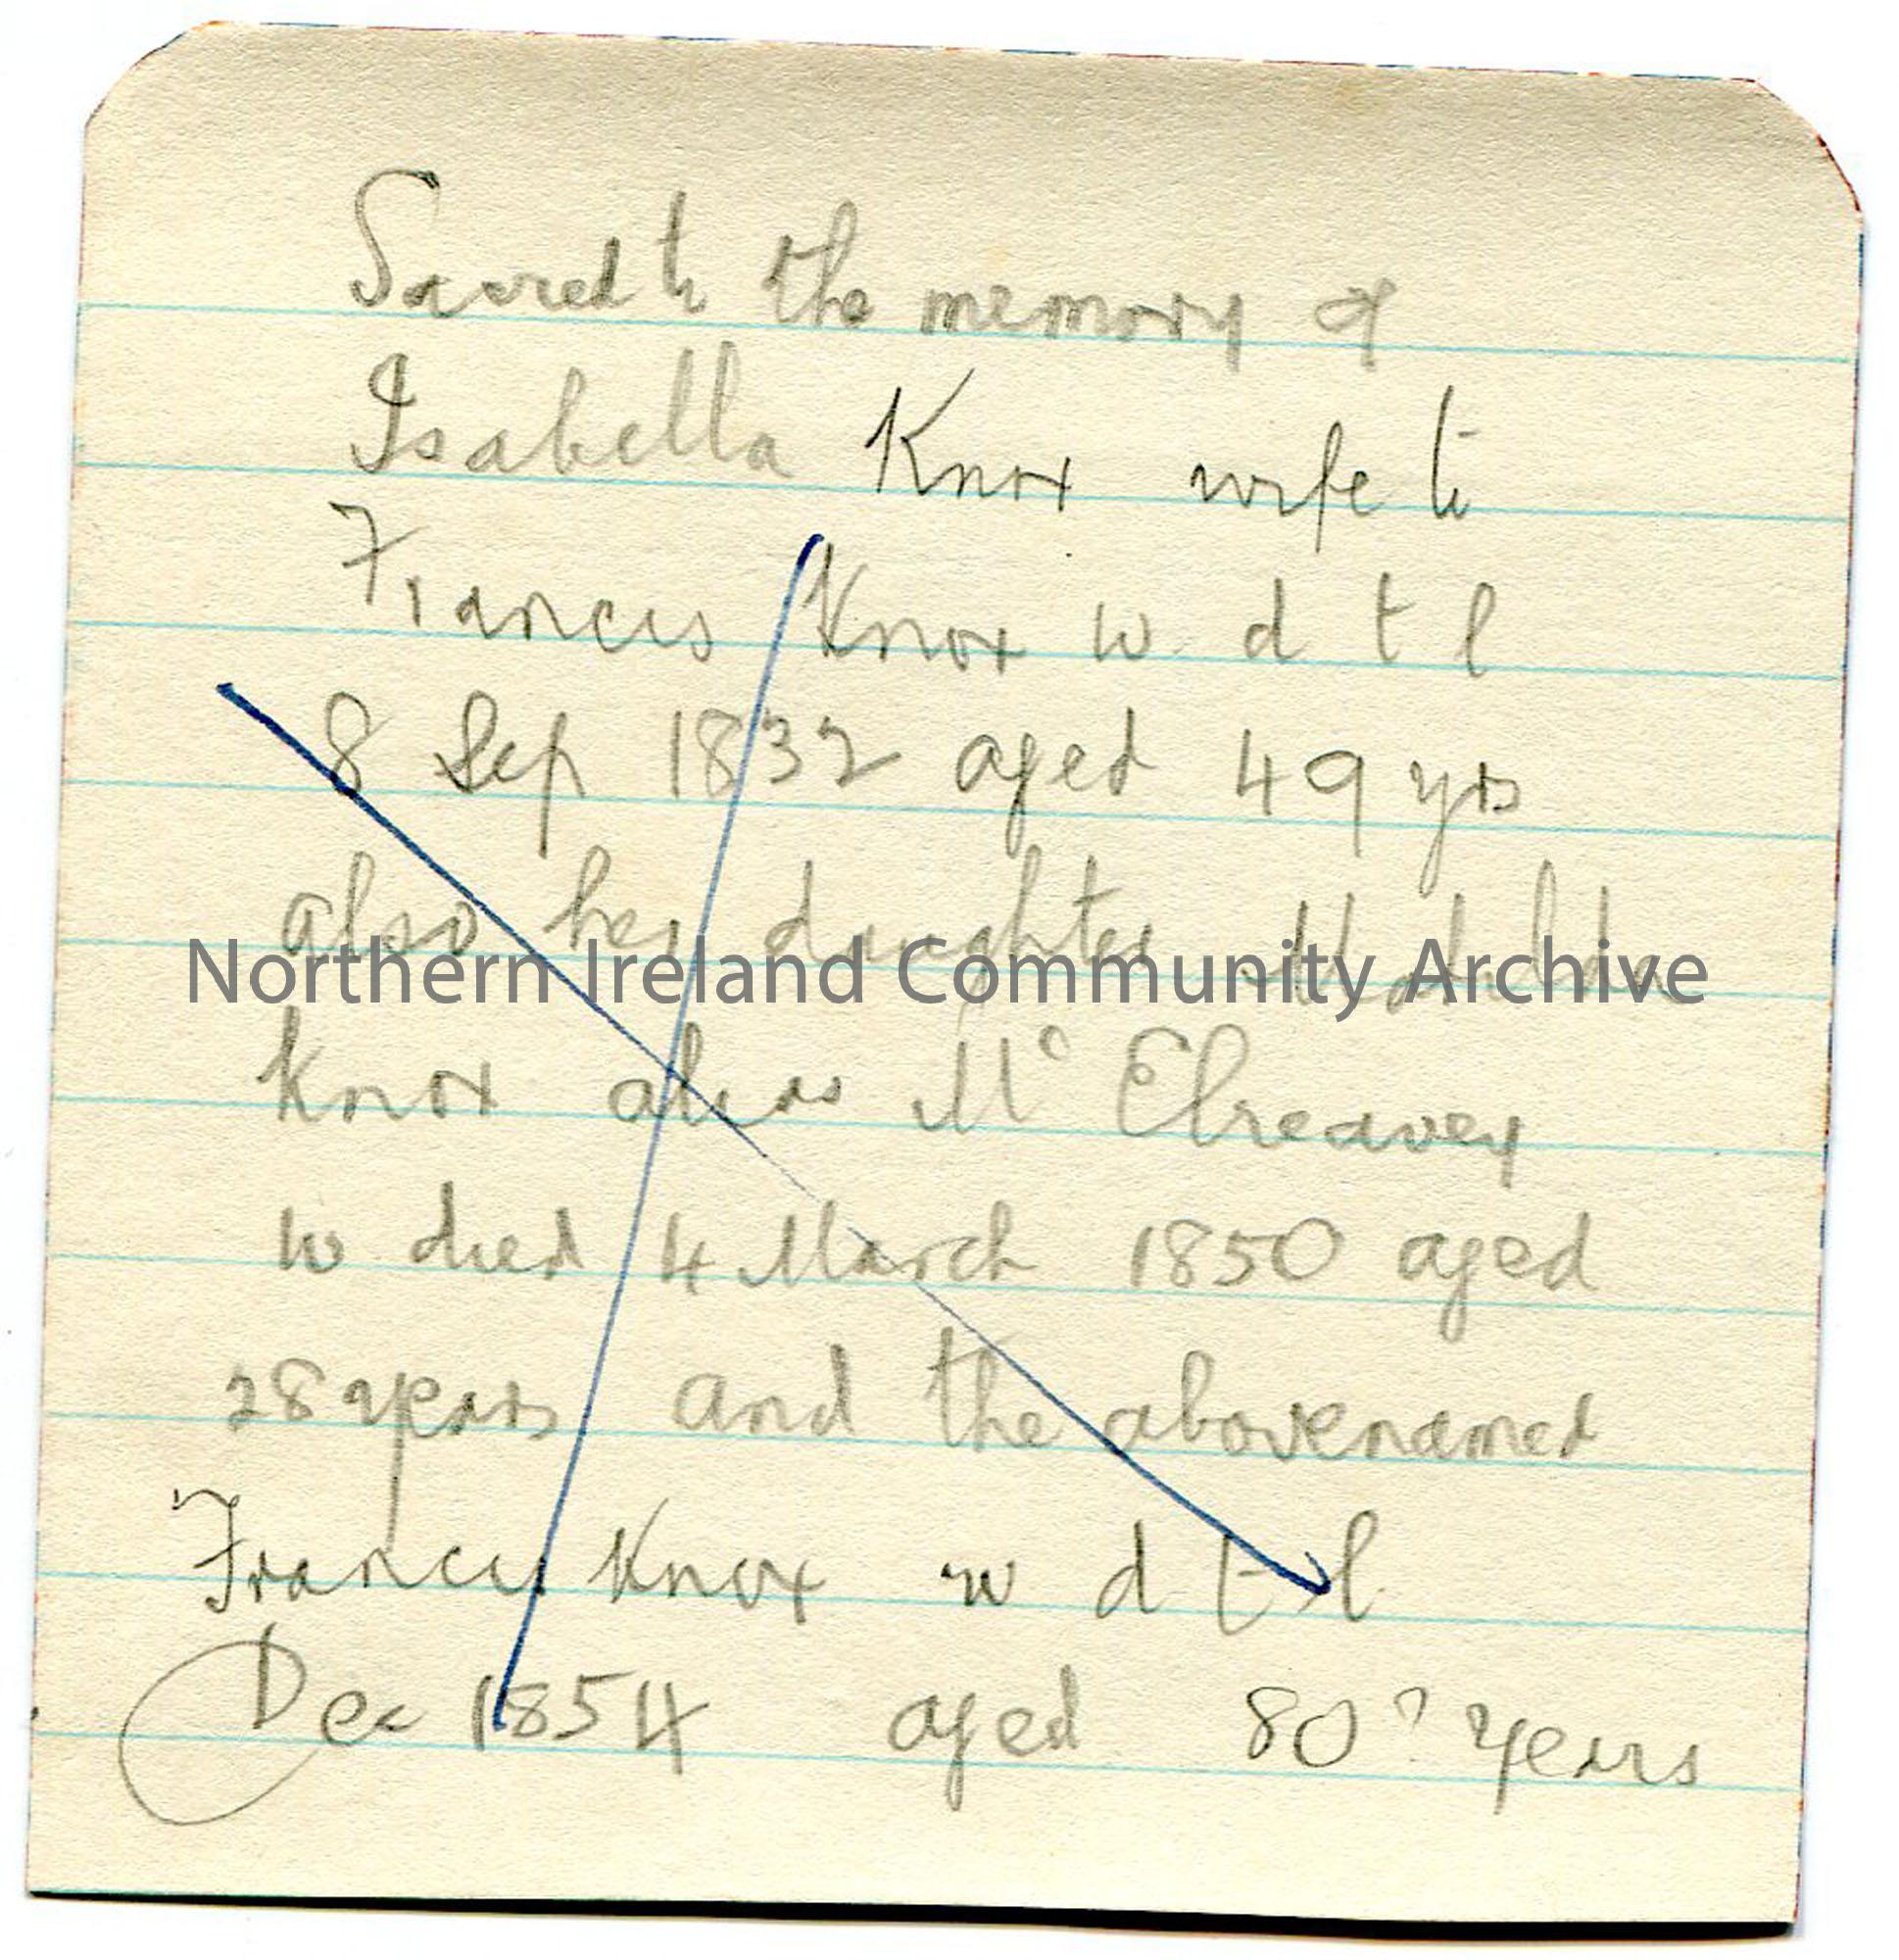 Sacred to the memory of
Isabella Knox wife to
Francis Knox w d t l
8 Sep 1832 aged 49 yrs
also her daughter Matilda
Northern Ireland Community Archive
Knox alias Mc Elreavey
w died 4 March 1850 aged
28 years and the abovenamed
Francis Knox w d t l
Dec 1854 aged 80? years